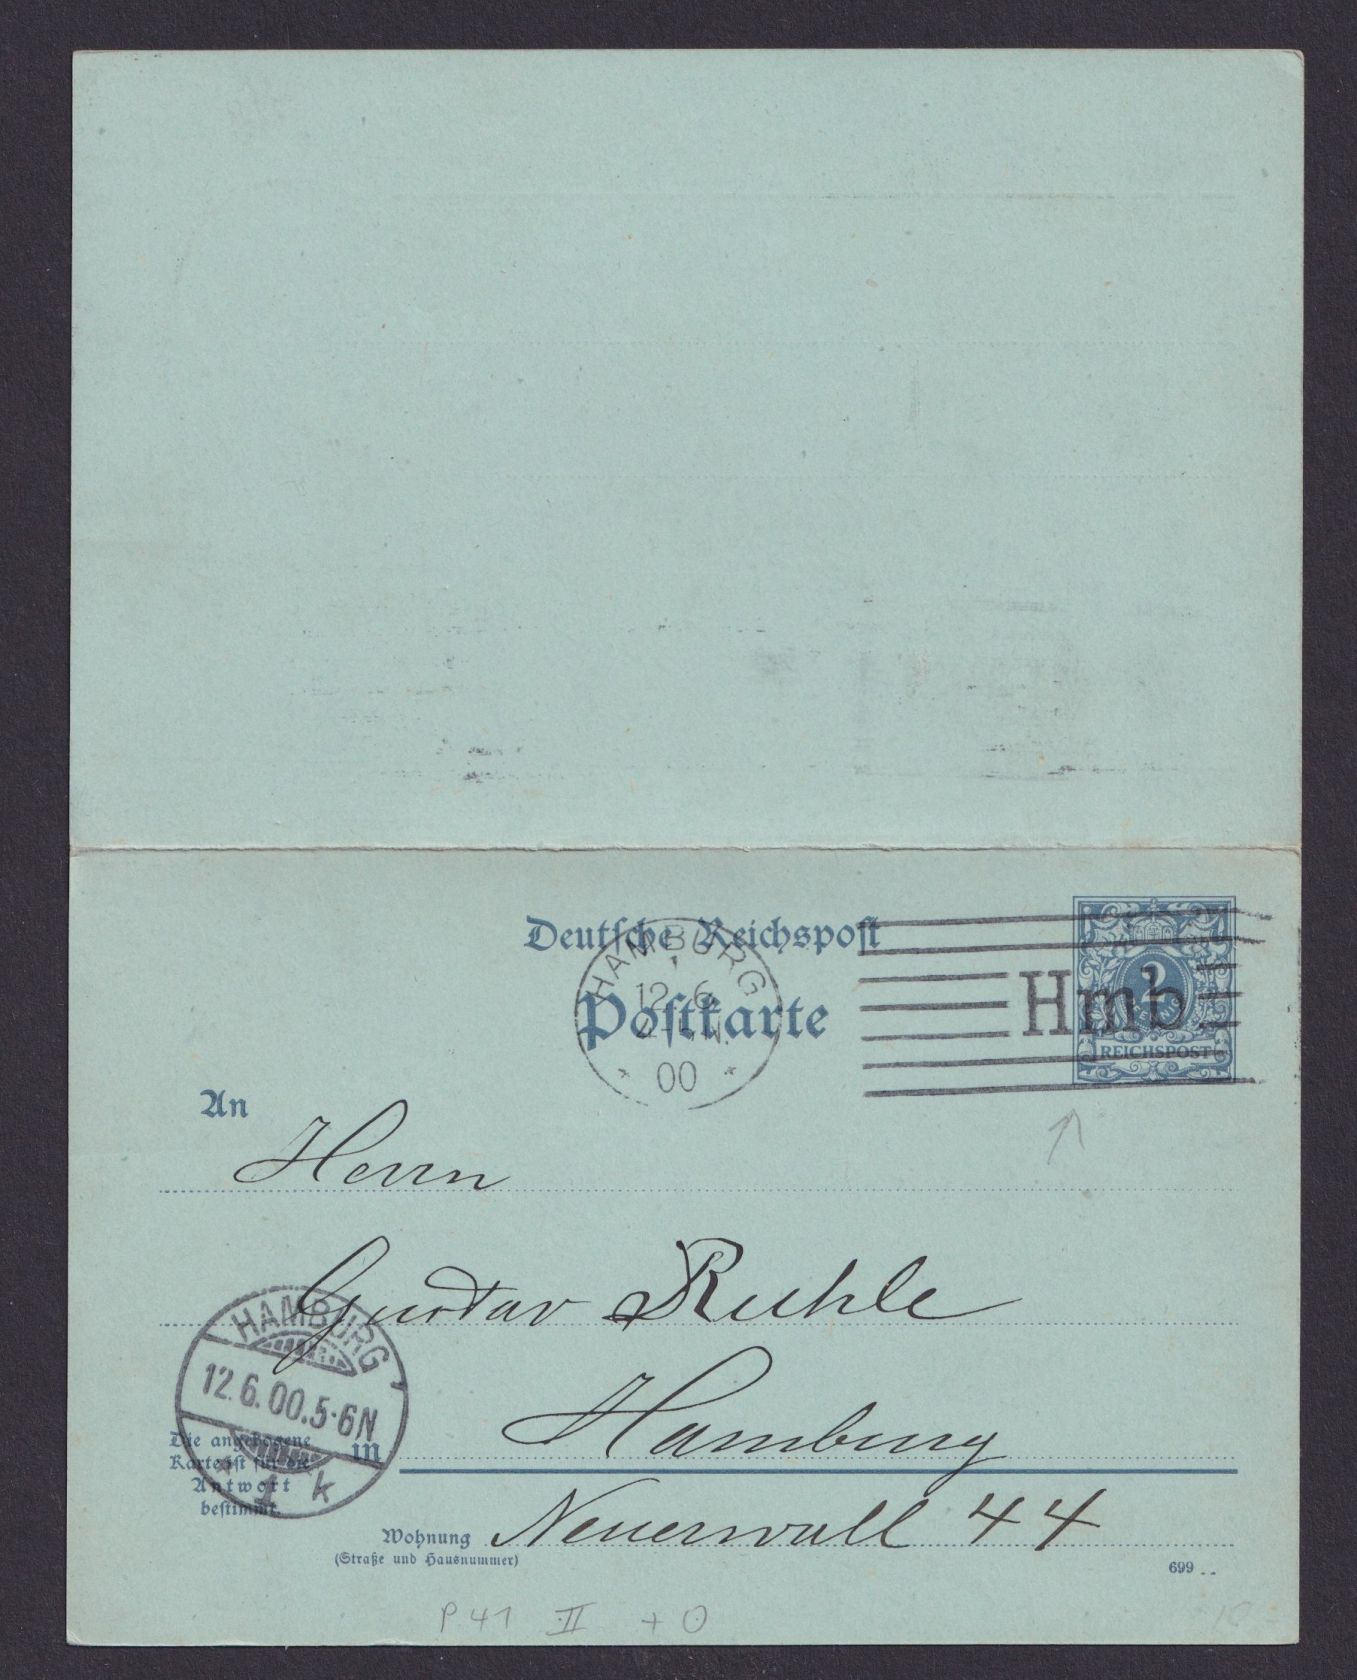 Deutsche Reichspost
Postkarte
HAMBURG
1
12.6.
4-5N.
* 00 *
Hmb.
2
PFENNIG
REICHSPOST
An
Herrn
Gustav Ruhle
Hamburg
in
HAMBURG
12.6.00.5-6N
* 1 k
Die angebogene
Karte ist für die
Antwort
bestimmt.
Wohnung Neuerwall 44
(Straße und Hausnummer)
699 ..
P 41 II + O